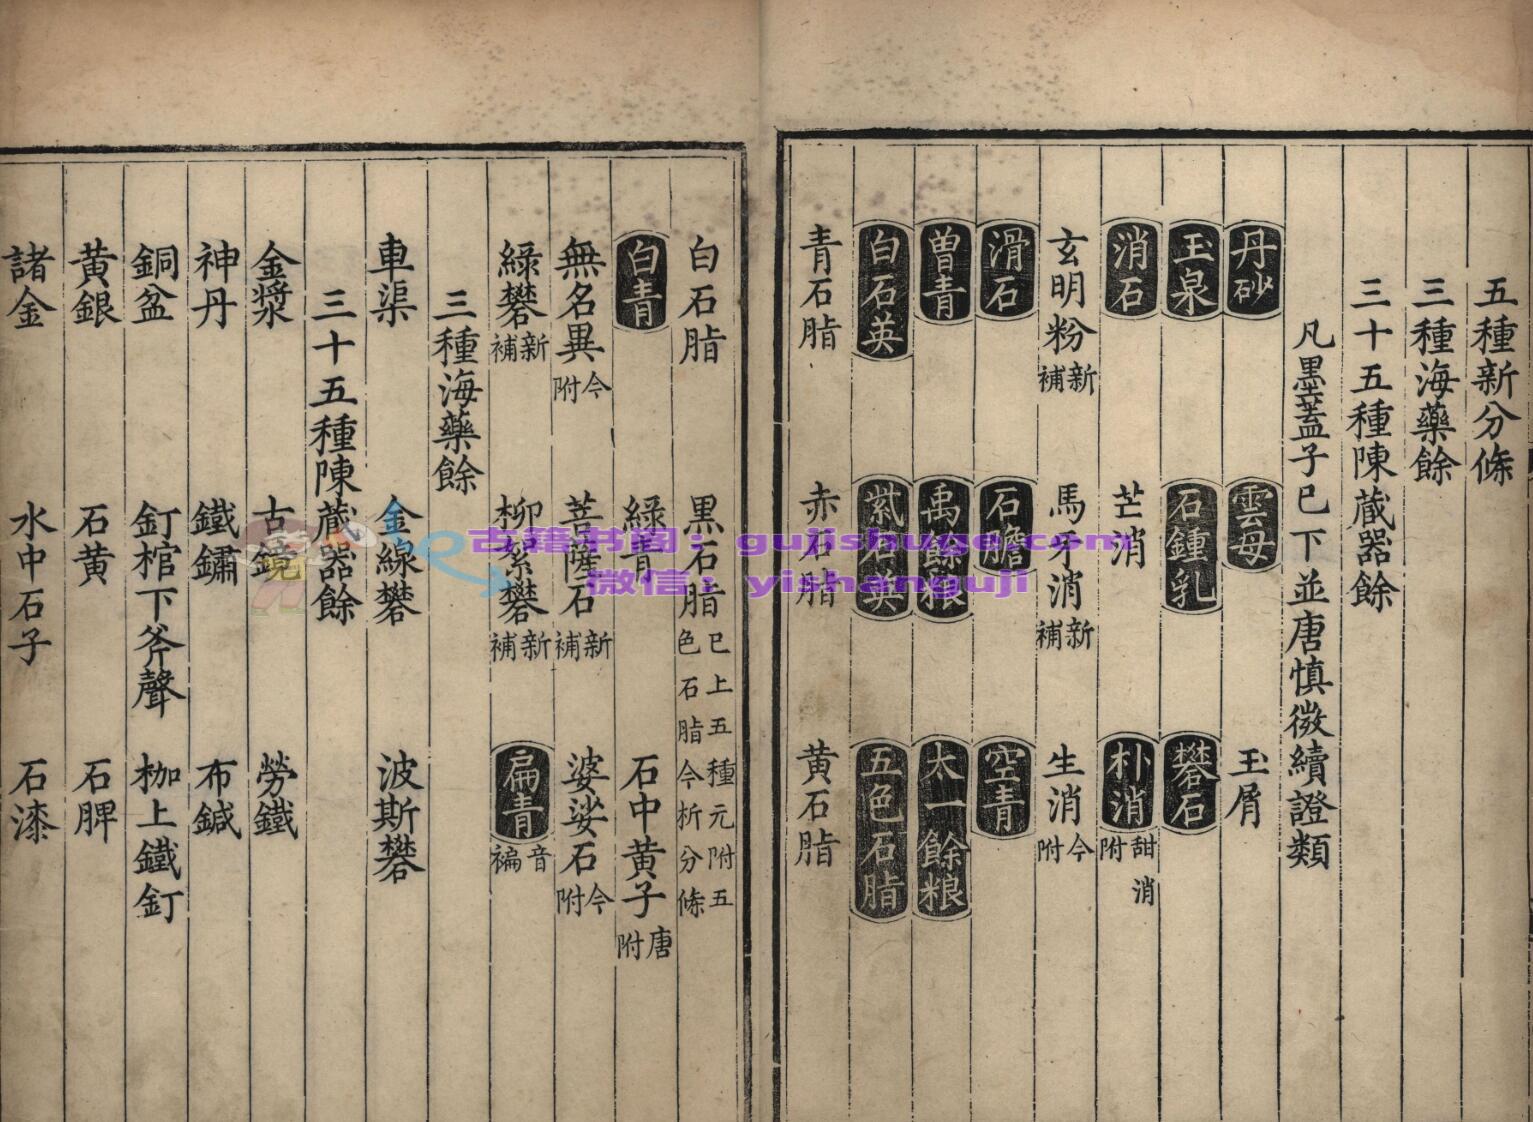 五種新分條
三種海藥餘
三十五種陳藏器餘
凡墨蓋子已下並唐慎微續證類
丹砂 雲母 玉屑
玉泉 石鍾乳 礬石
消石 芒消 朴消甜消附
玄明粉新補 馬牙消新補 生消今附
滑石 石膽 空青
曾青 禹餘粮 太一餘粮
白石英 紫石英 五色石脂
青石脂 赤石脂 黄石脂
白石脂 黑石脂已上五種元附五色石脂今析分條
白青 綠青 石中黄子唐附
無名異今附 菩薩石新補 婆娑石今附
綠礬新補 柳絮礬新補 扁青音褊
三種海藥餘
車渠 金線礬 波斯礬
三十五種陳藏器餘
金漿 古鏡 勞鐵
神丹 鐵鏽 布鍼
銅盆 釘棺下斧聲 枷上鐵釘
黄銀 石黄 石脾
諸金 水中石子 石漆
古籍书阁：gujishuge.com
微信：yishanguji